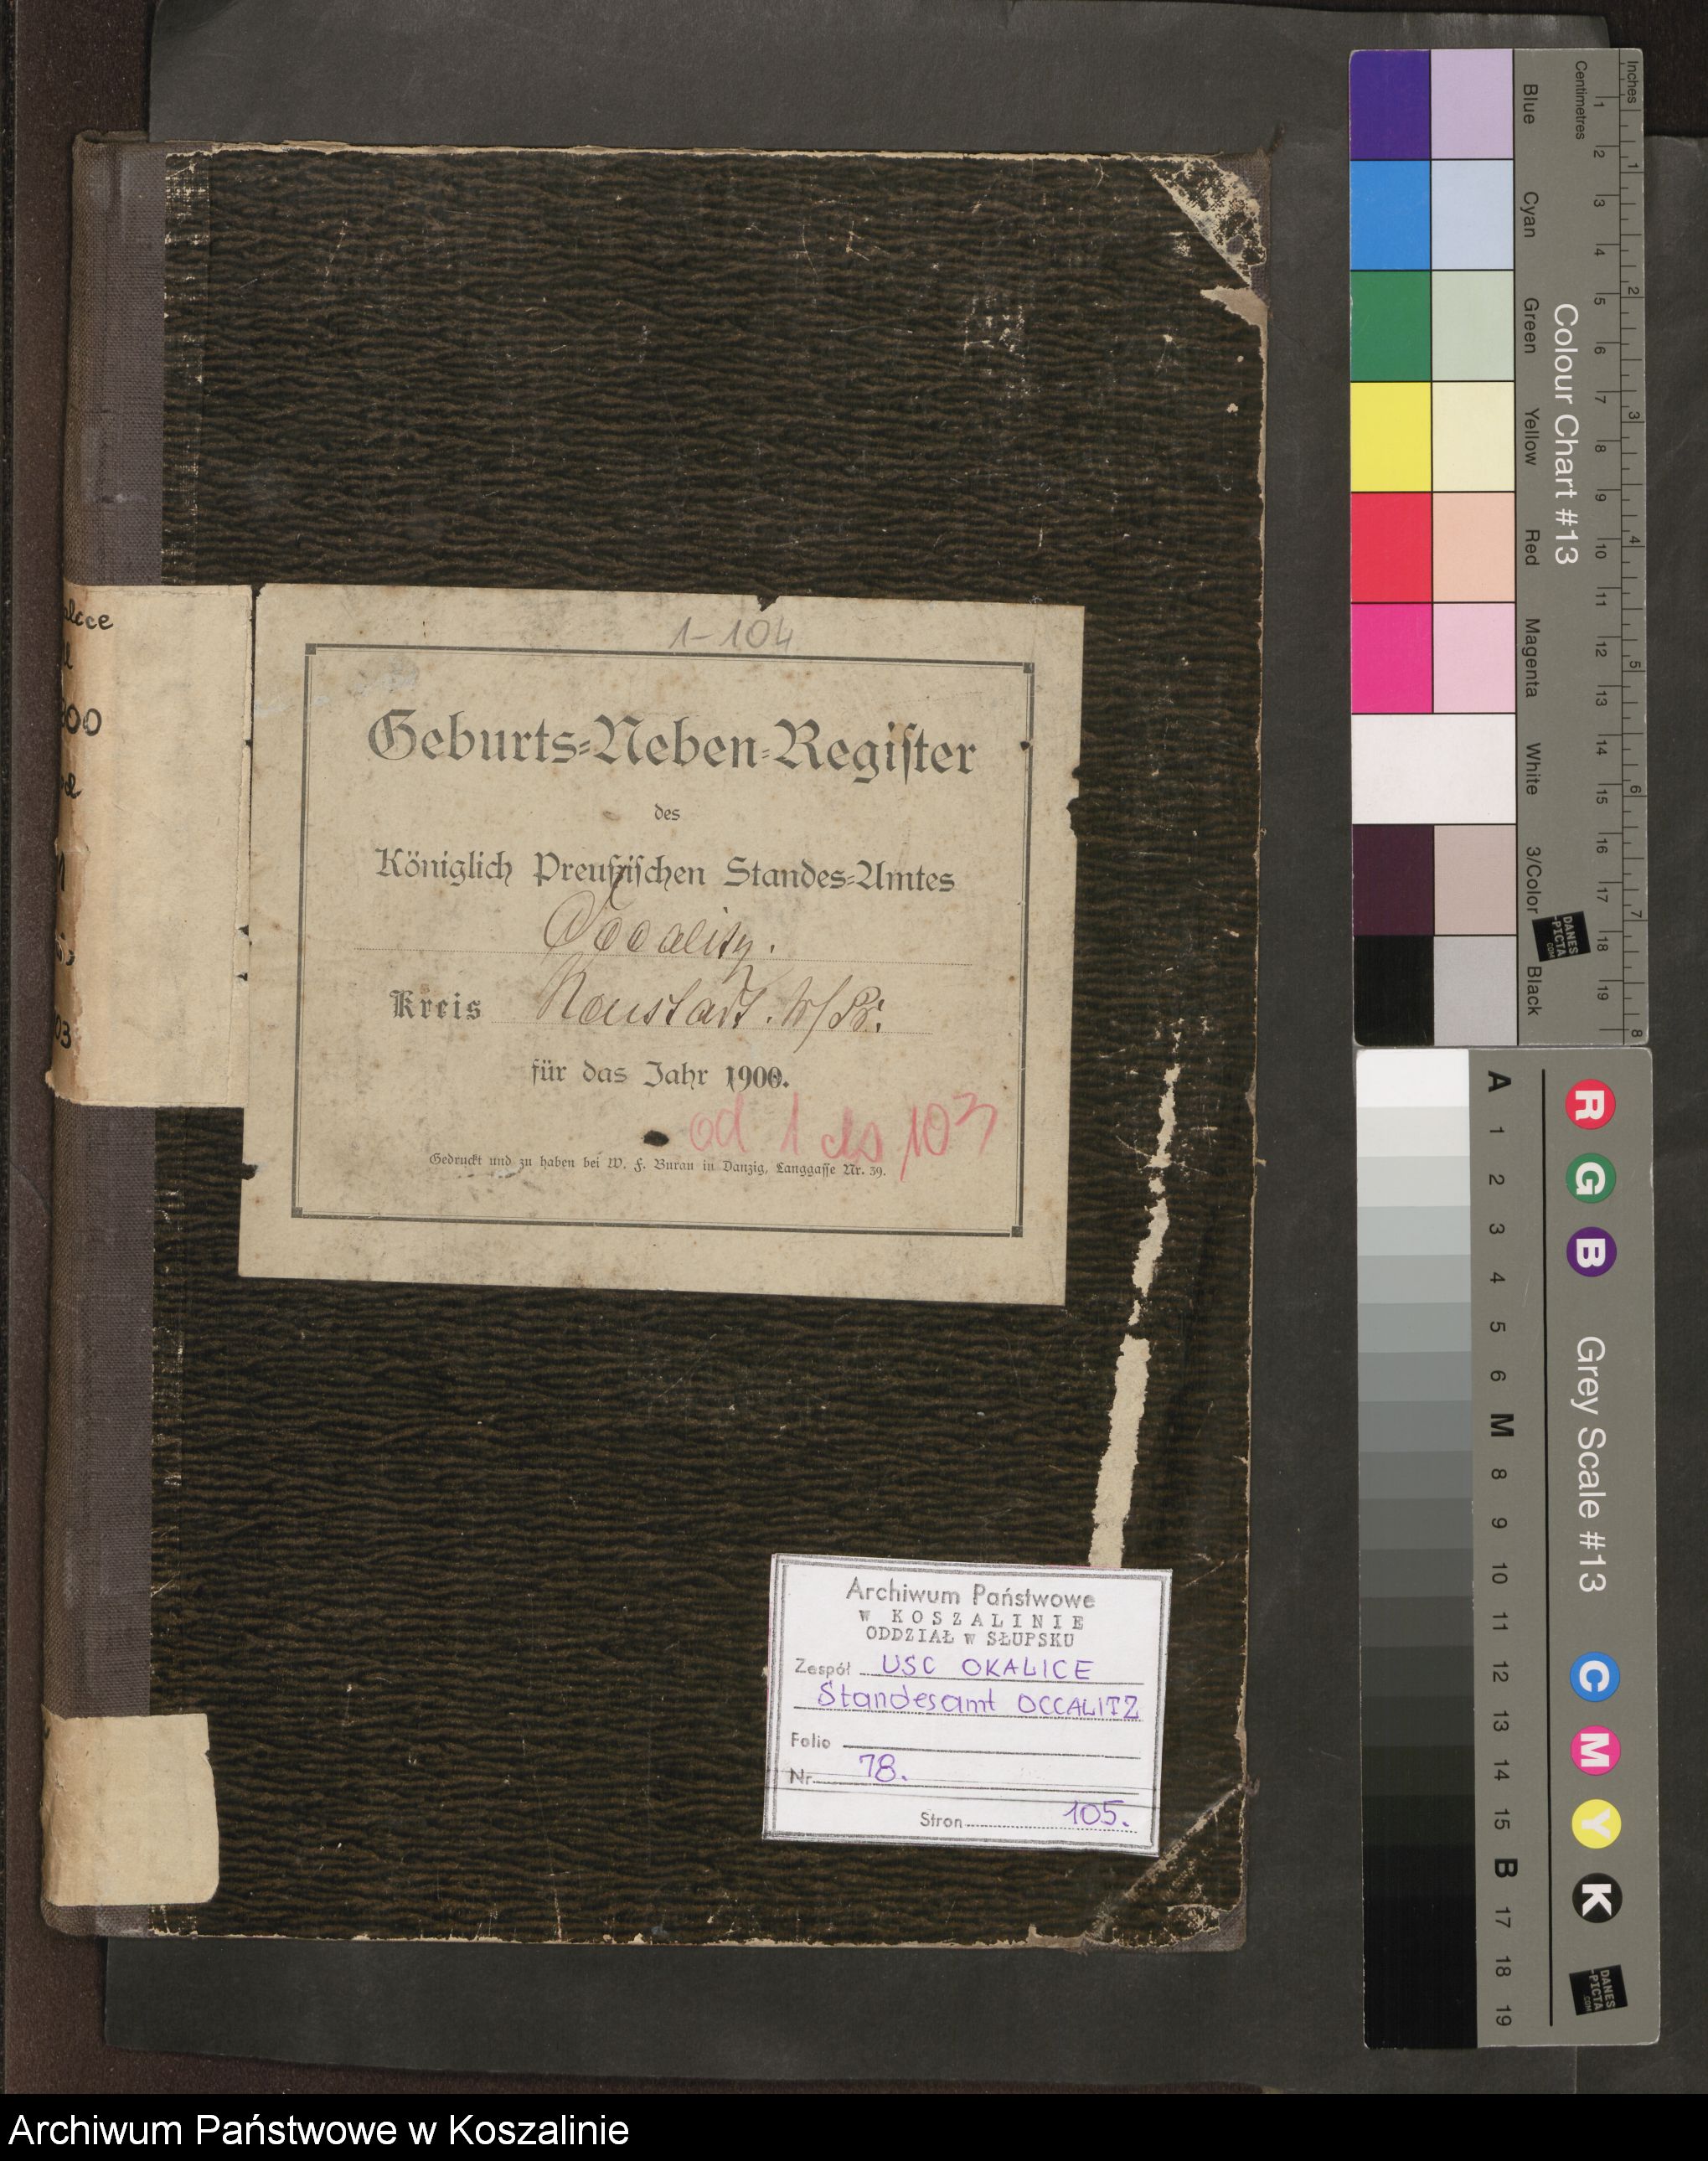 1-104
Geburts-Neben-Register
des
Königlich Preußischen Standes-Amtes
Occalitz.
Kreis Neustadt. W/Pr.
für das Jahr 1900.
od 1 do 103
Gedruckt und zu haben bei W. F. Burau in Danzig, Langgasse Nr. 39.
Archiwum Państwowe
w KOSZALINIE
ODDZIAŁ w SŁUPSKU
Zespół USC OKALICE
Standesamt OCCALITZ
Folio
Nr. 78.
Stron 105.
Inches
Centimetres
1 2 3 4 5 6 7 8 9 10 11 12 13 14 15 16 17 18 19
1 2 3 4 5 6 7 8
Colour Chart #13
Blue Cyan Green Yellow Red Magenta White 3/Color Black
DANES
-PICTA
.COM
A 1 2 3 4 5 6 M 8 9 10 11 12 13 14 15 B 17 18 19
R G B Grey Scale #13 C M Y K
DANES
-PICTA
.COM
Archiwum Państwowe w Koszalinie